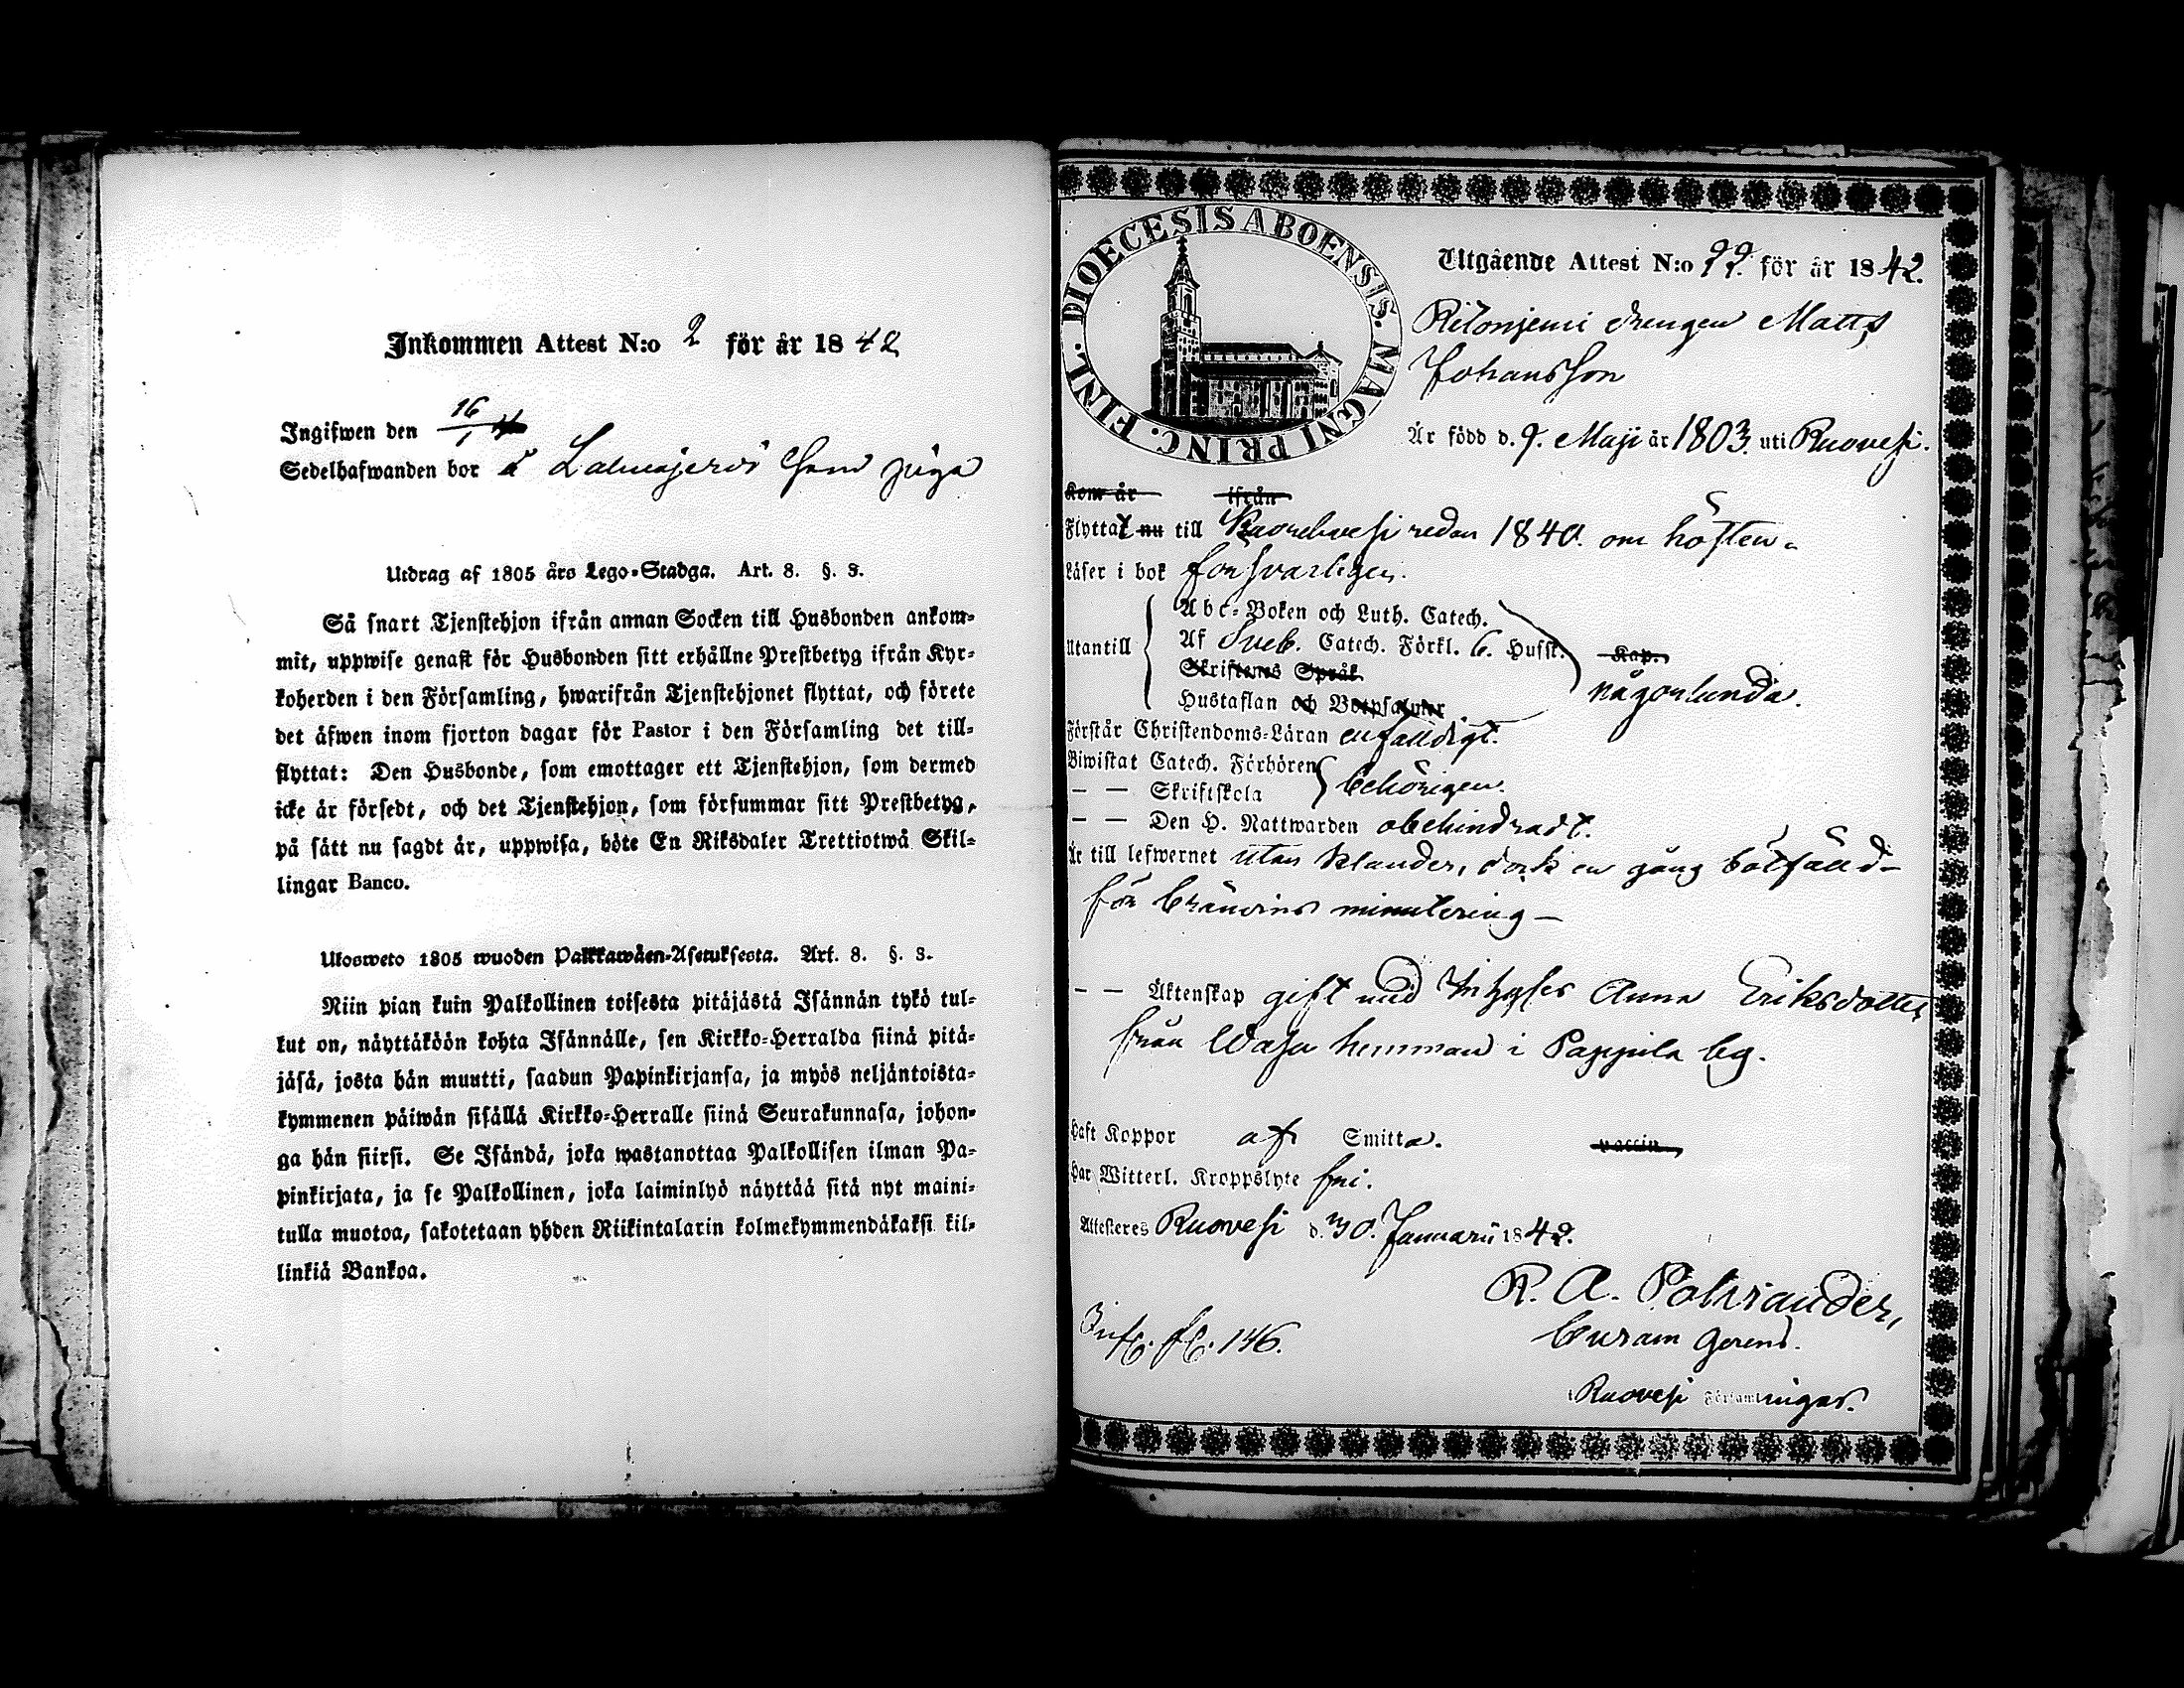 Inkommen Attest N:o 2 för år 1842
Ingifwen den 16/1
Sedelhafwanden bor å som piga
Utdrag af 1805 års Lego-Stadga. Art. 8. §. 3.
Så snart Tjenstehjon ifrån annan Socken till Husbonden ankom-
mit, uppwise genast för Husbonden sitt erhållne Prestbetyg ifrån Kyr-
koherden i den Församling, hwarifrån Tjenstehjonet flyttat, och förete
det äfwen inom fjorton dagar för Pastor i den Församling det till-
flyttat: Den Husbonde, som emottager ett Tjenstehjon, som dermed
icke är försedt, och det Tjenstehjon, som försummar sitt Prestbetyg,
på sätt nu sagdt är, uppwisa, böte En Riksdaler Trettiotwå Skil-
lingar Banco.
Ulosweto 1805 wuoden Palkkawäen-Asetuksesta. Art. 8. §. 3.
Niin pian kuin Palkollinen toisesta pitäjästä Isännän tykö tul-
lut on, näyttäköön kohta Isännälle, sen Kirkko-Herralda siinä pitä-
jäsä, josta hän muutti, saadun Papinkirjansa, ja myös neljäntoista-
kymmenen päiwän sisällä Kirkko-Herralle siinä Seurakunnasa, johon-
ga hän siirsi. Se Isändä, joka wastanottaa Palkollisen ilman Pa-
pinkirjata, ja se Palkollinen, joka laiminlyö näyttää sitä nyt maini-
tulla muotoa, sakotetaan yhden Riikintalarin kolmekymmendäkaksi kil-
linkiä Bankoa.
DIOECESIS ABOENSIS. MAGNI PRINC. FINL.
Utgående Attest N:o 99. för år 1842.
Ritoniemi drengen Matts
Johansson
Är född d. 9. Maji år 1803. uti Ruovesi.
Kom år ifrån
Flyttat nu till redan 1840. om hösten.
Läser i bok försvarligen.
Utantill
Abc-Boken och Luth. Catech.
Af Sveb. Catech. Förkl. 6. Hufst. Kap.
Skriftenes Språk
Hustaflan och Botpsalmer någorlunda.
Förstår Christendoms-Läran enfaldigt.
Biwistat Catech. Förhören
— — Skriftskola behörigen.
— — Den H. Nattwarden obehindradt.
Är till lefwernet utan klander, dock en gång bötfälld
för bränvins minutering —
— — Äktenskap gift med Anna Eriksdotter
från Wasa hemman i Pappila by.
Haft Koppor af Smitta. vaccin.
Har Witterl. Kroppslyte fri.
Attesteras Ruovesi d. 30. Januarii 1842.
R. A. Polviander,
Curam Gerens.
i Ruovesi Församlingar.
fl. 146.